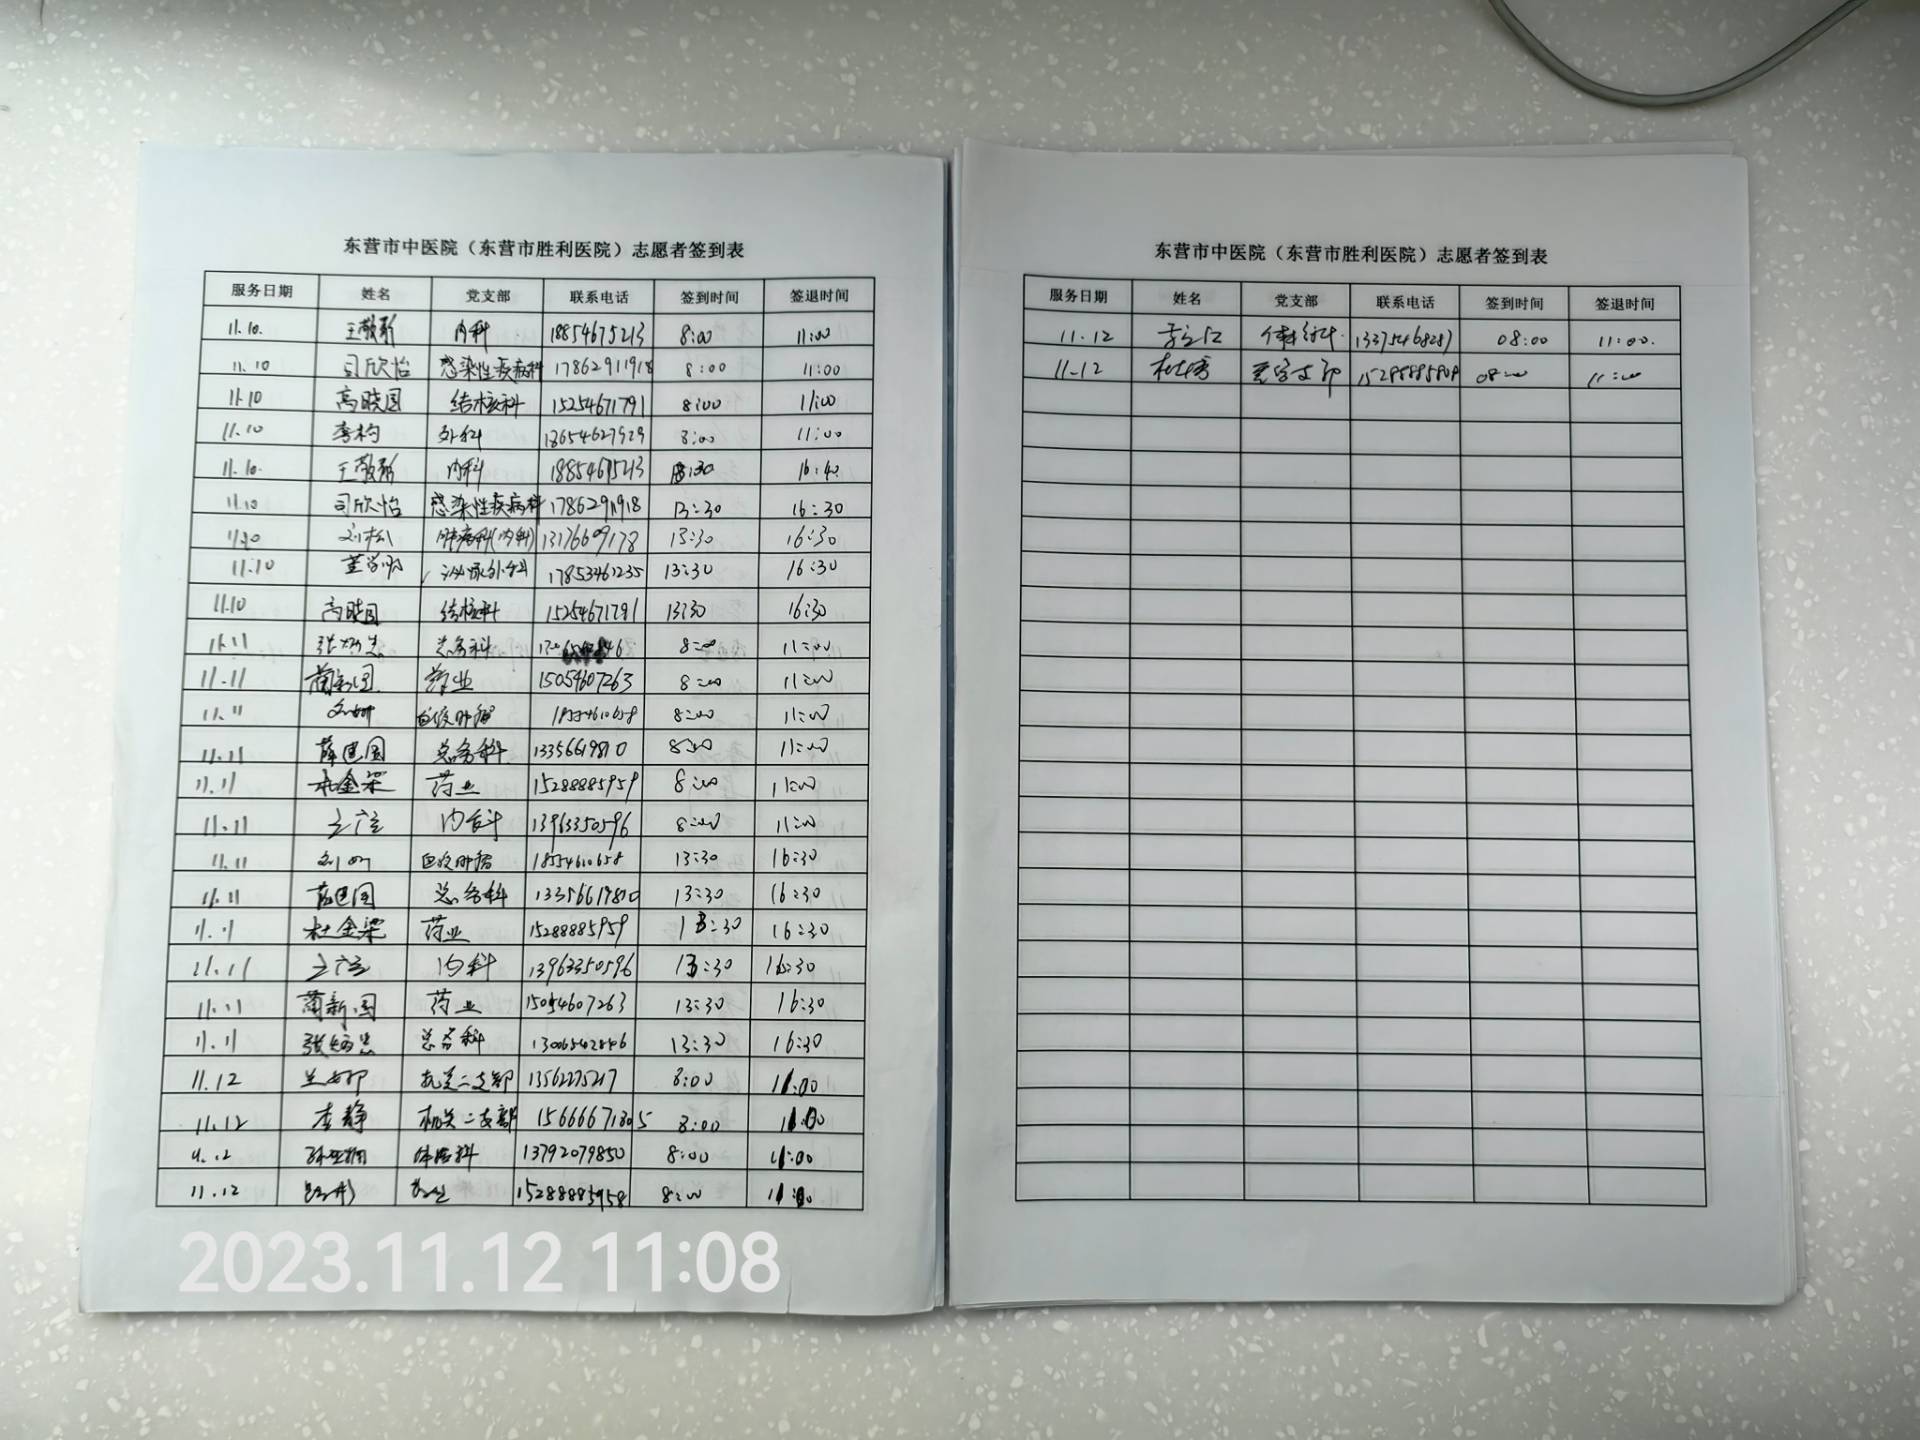 东营市中医院（东营市胜利医院）志愿者签到表
服务日期 姓名 党支部 联系电话 签到时间 签退时间
11.10. 王敬彩 内科 18854675213 8:00 11:00
11.10 司欣怡 感染性疾病科 17862911918 8:00 11:00
11.10 高晓园 结核科 15254671791 8:00 11:00
11.10 李构 外科 13654627929 8:00 11:00
11.10. 王敬彩 内科 18854675213 13:30 16:40
11.10 司欣怡 感染性疾病科 17862911918 13:30 16:30
11.10 刘松 肿瘤科(内科) 13176609178 13:30 16:30
11.10 泌尿外科 17853461235 13:30 16:30
11.10 高晓园 结核科 15254671791 13:30 16:30
11.11 总务科 8:00 11:00
11.11 蔺新国 药业 15054607263 8:00 11:00
11.11 8:00 11:00
11.11 薛建国 总务科 13356619810 8:00 11:00
11.11 杜金梁 药业 15288885959 8:00 11:00
11.11 内科 13963350596 8:00 11:00
11.11 18554610658 13:30 16:30
11.11 薛建国 总务科 13356619810 13:30 16:30
11.11 杜金梁 药业 15288885959 13:30 16:30
11.11 内科 13963350596 13:30 16:30
11.11 蔺新国 药业 15054607263 13:30 16:30
11.11 总务科 13:30 16:30
11.12 机关二支部 13562275217 8:00 11:00
11.12 李静 机关二支部 15666671305 8:00 11:00
11.12 体检科 13792079850 8:00 11:00
11.12 15288885958 8:00 11:00
2023.11.12 11:08
东营市中医院（东营市胜利医院）志愿者签到表
服务日期 姓名 党支部 联系电话 签到时间 签退时间
11.12 08:00 11:00.
11-12 08:00 11:00